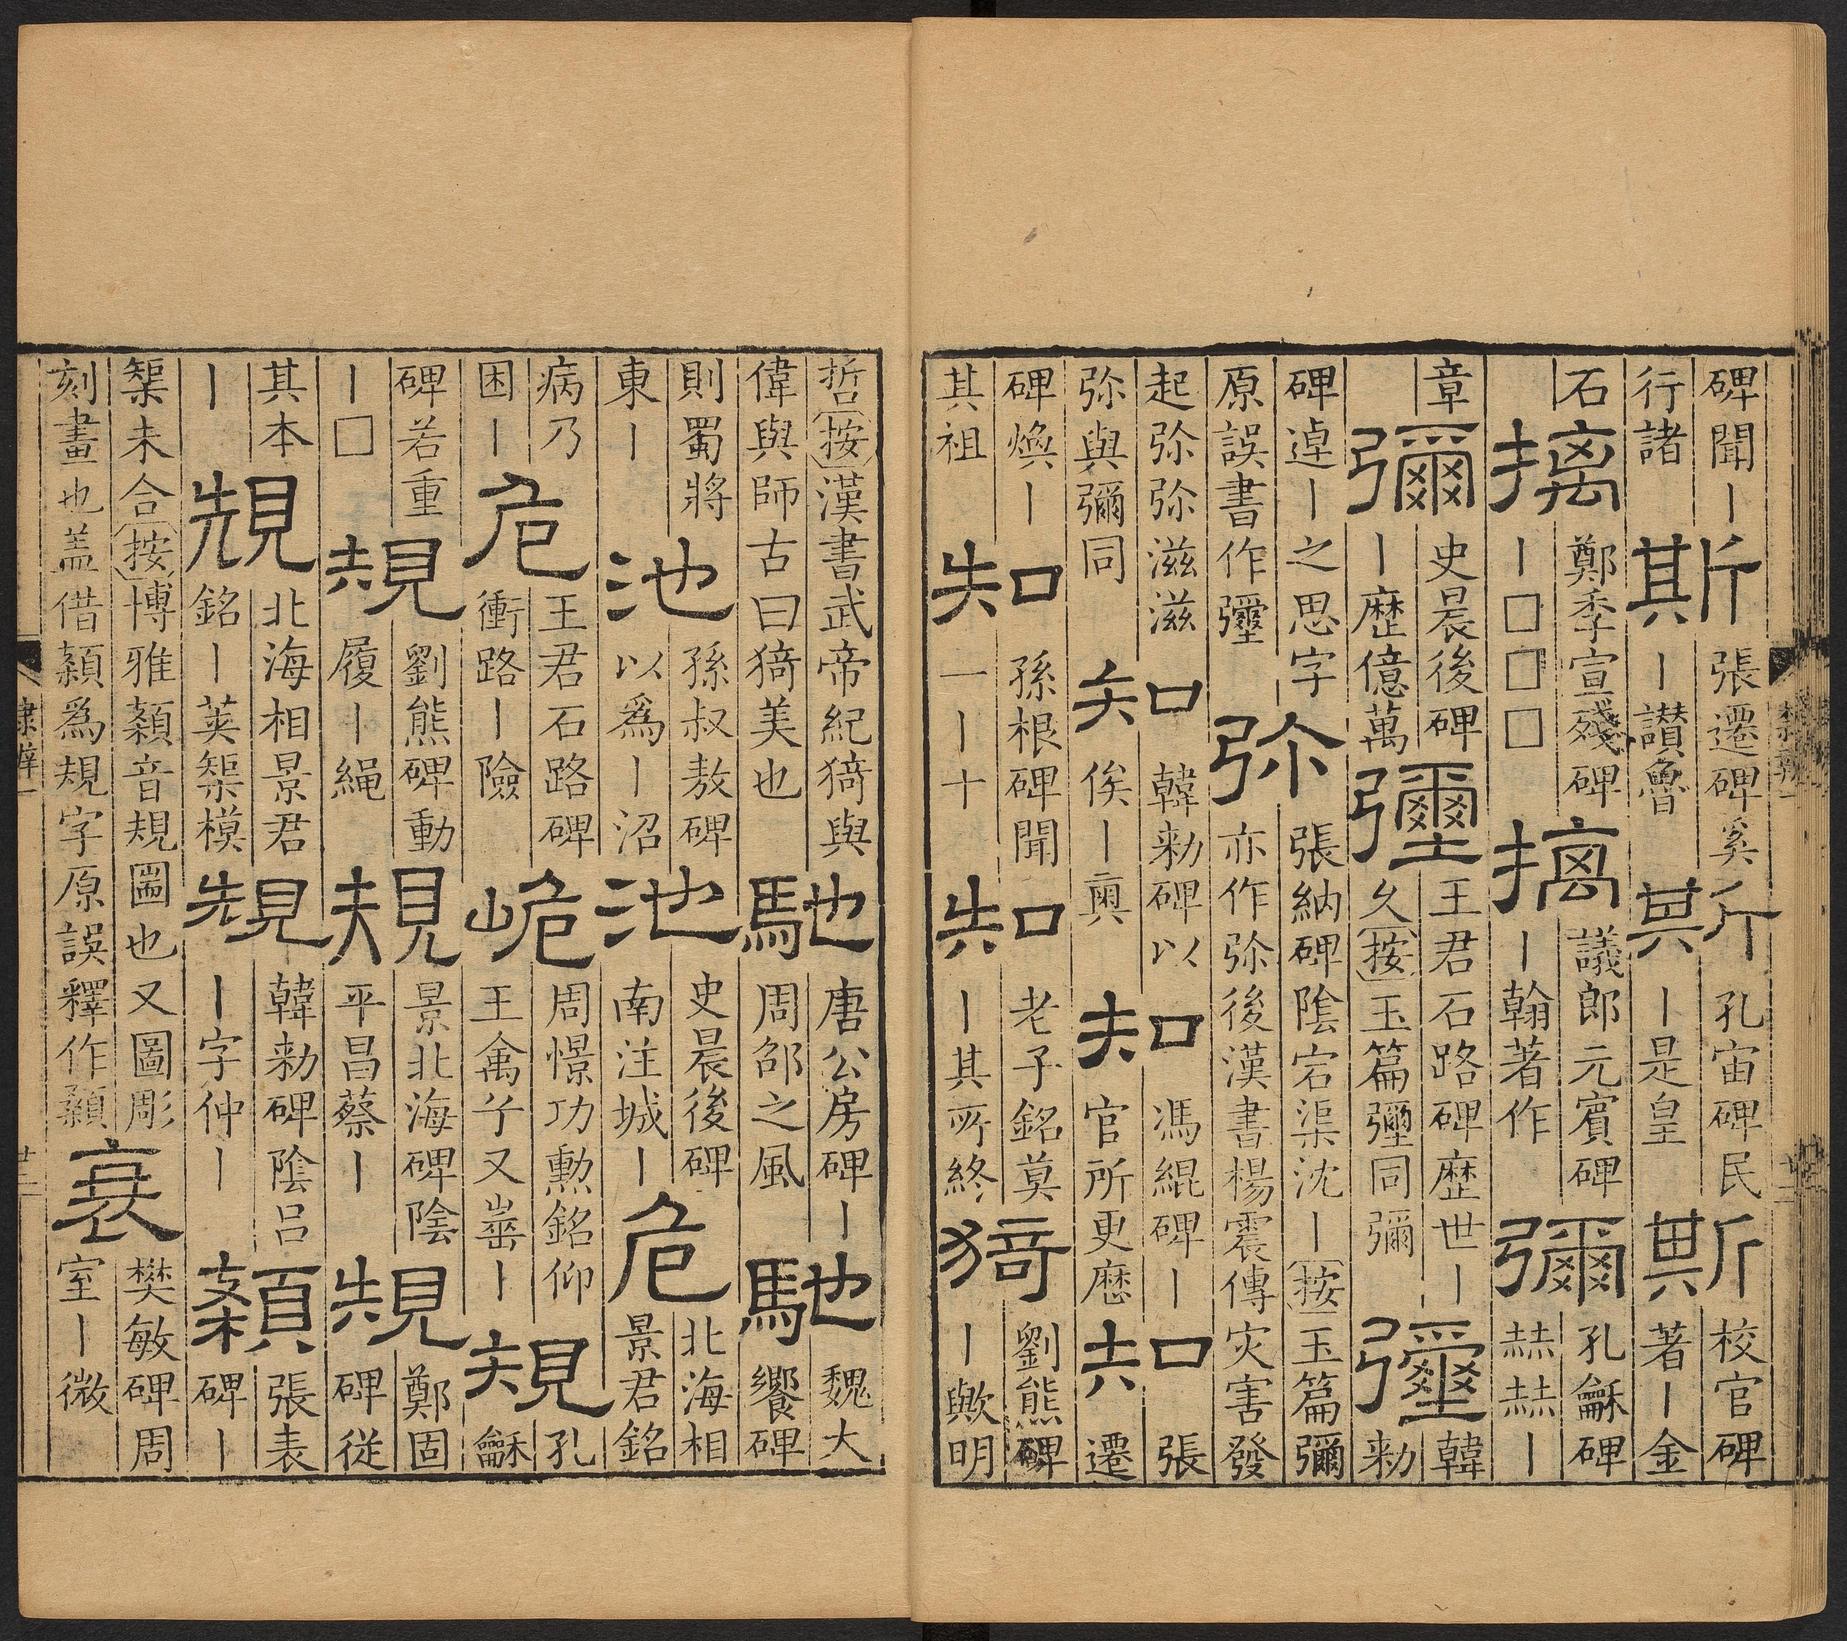 碑聞丨行諸斯張遷碑奚丨讃魯斯孔宙碑民丨是皇斯校官碑著丨金
石摛鄭季宣殘碑丨□□□摛議郎元賓碑丨翰著作彌孔龢碑赫赫丨
章彌史晨後碑丨歷億萬瓕王君石路碑歷世丨久按玉篇瓕同彌瓕韓勑
碑逴丨之思字原誤書作瓕弥張納碑陰宕渠沈丨按玉篇彌亦作弥後漢書楊震傳灾害發
起弥弥滋滋弥與彌同知韓勑碑以俟丨奧知馮緄碑丨官所更歷知張遷
碑煥丨其祖知孫根碑聞一丨十知老子銘莫丨其所終猗劉熊碑丨歟明
哲按漢書武帝紀猗與偉與師古曰猗美也馳唐公房碑丨周邵之風馳魏大饗碑
則蜀將東丨池孫叔敖碑以爲丨沼池史晨後碑南注城丨危北海相景君銘
病乃困丨危王君石路碑衝路丨險峗周憬功勳銘仰王禽兮又崋丨規孔龢
碑若重丨□規劉熊碑動履丨繩規景北海碑陰平昌蔡丨規鄭固碑從
其本丨規北海相景君銘丨英榘模規韓勑碑陰呂丨字仲丨䫌張表碑丨
榘未合按博雅䫌音規圖也又圖彫刻畫也盖借䫌爲規字原誤釋作䫌衰樊敏碑周室丨微